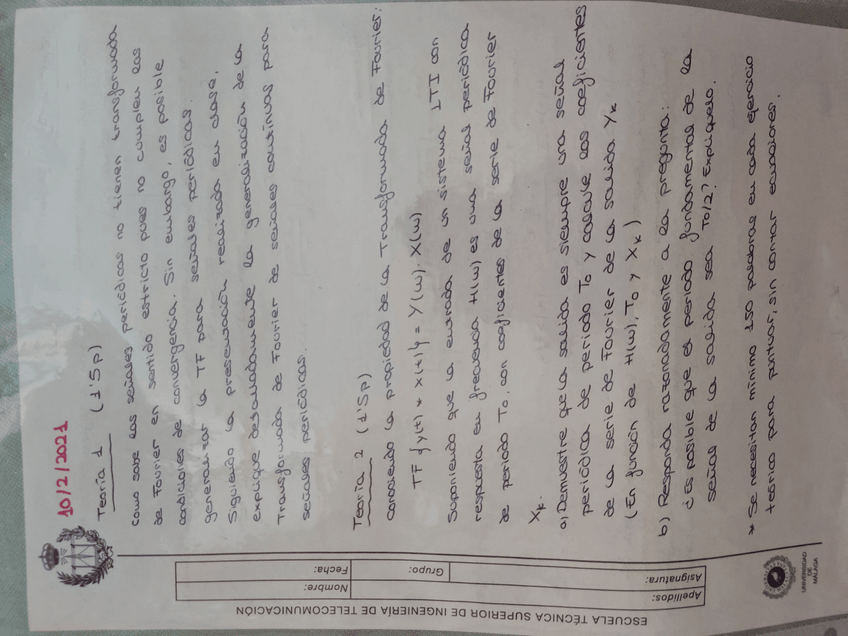 10/2/2021
Teoría 1 (1'5p)
Como sabe las señales periódicas no tienen transformada
de Fourier en sentido estricto pues no cumplen las
condiciones de convergencia. Sin embargo, es posible
generalizar la TF para señales periódicas.
Siguiendo la presentación realizada en clase,
explique detalladamente la generalización de la
Transformada de Fourier de señales continuas para
señales periódicas.
Teoría 2 (1'5p)
Conociendo la propiedad de la Transformada de Fourier:
TF {y(t) * x(t)} = Y(w). X(w)
Suponiendo que la entrada de un sistema LTI con
respuesta en frecuencia H(w) es una señal periódica
de periodo To, con coeficientes de la serie de Fourier
Xk.
a) Demuestre que la salida es siempre una señal
periódica de periodo To y calcule los coeficientes
de la serie de Fourier de la salida Yk
(En función de H(w), To y Xk)
b) Responda razonadamente a la pregunta:
¿Es posible que el periodo fundamental de la
señal de la salida sea To/2? Explíquelo.
* Se necesitan mínimo 150 palabras en cada ejercicio
teórico para puntuar, sin contar ecuaciones.
ESCUELA TÉCNICA SUPERIOR DE INGENIERÍA DE TELECOMUNICACIÓN
Apellidos:
Nombre:
Asignatura:
Grupo:
Fecha:
UNIVERSIDAD
DE
MÁLAGA